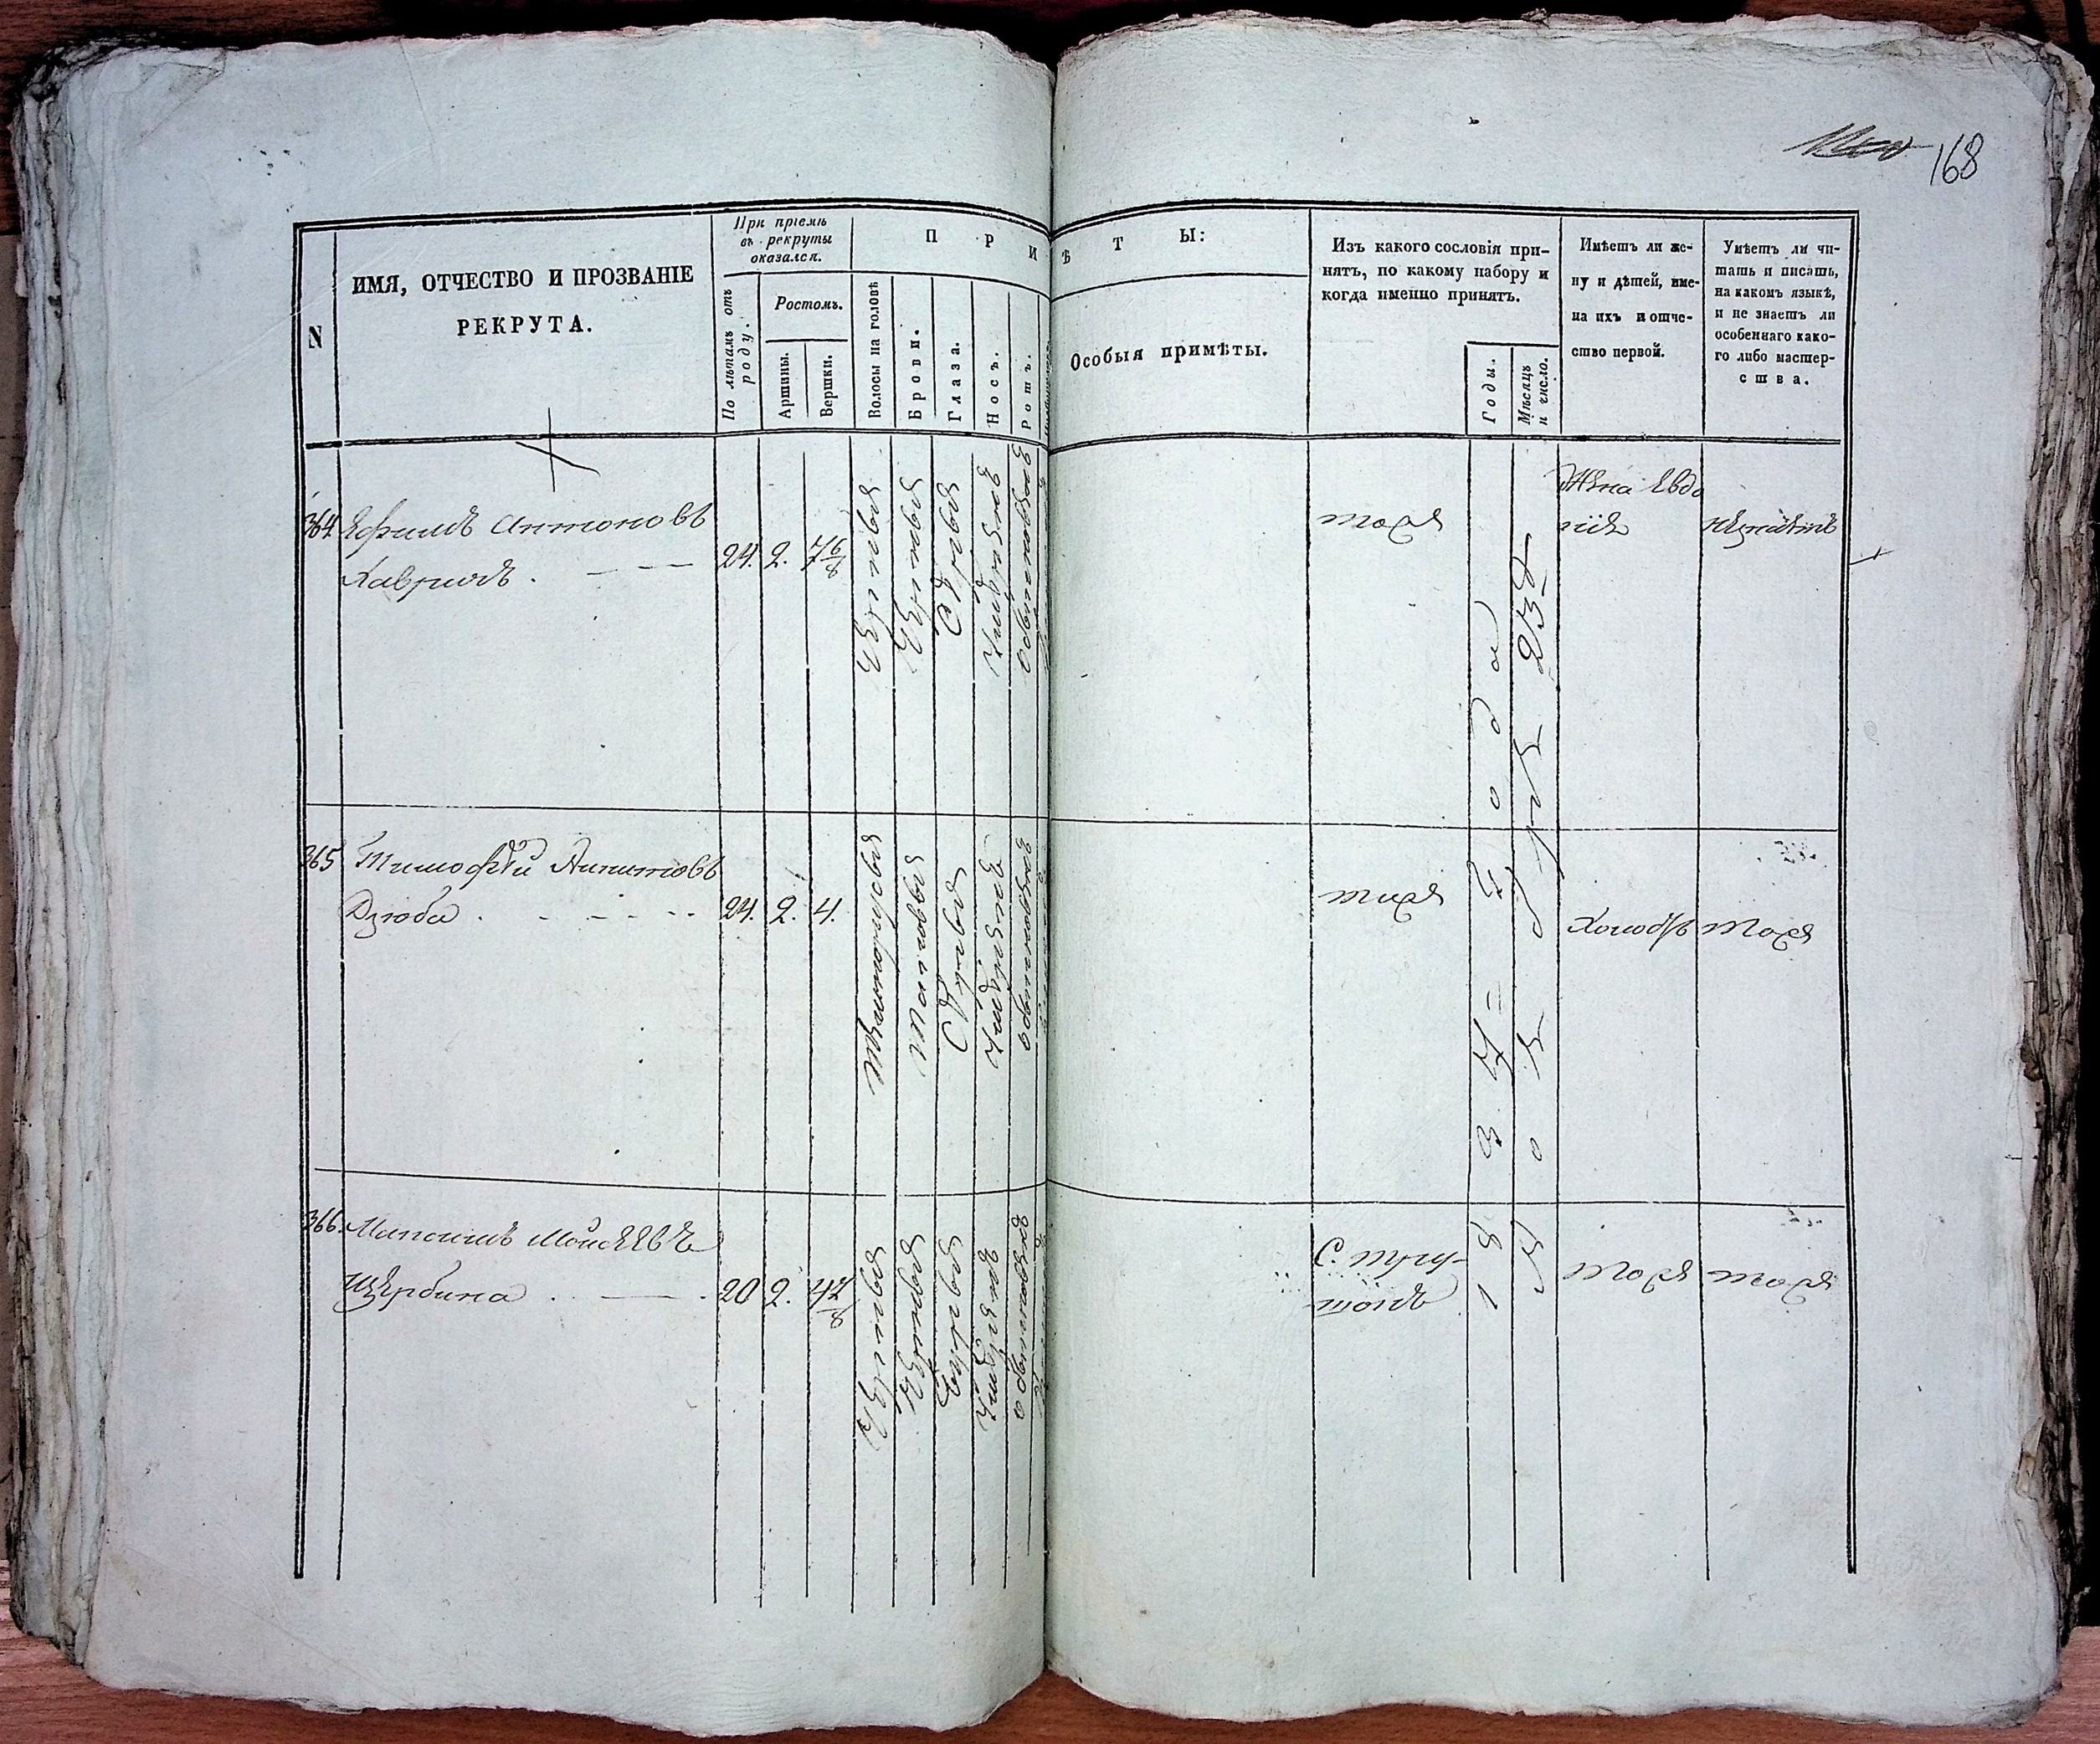 168
N
ИМЯ, ОТЧЕСТВО И ПРОЗВАНІЕ
РЕКРУТА.
При пріемѣ
въ рекруты
оказался.
По лѣтамъ отъ
роду.
Ростомъ.
Аршины.
Вершки.
П Р И
Волосы на головѣ
Брови.
Глаза.
Носъ.
Ротъ.
Ѣ Т Ы:
Особыя примѣты.
Изъ какого сословія при-
нятъ, по какому набору и
когда именно принятъ.
Годы.
Мѣсяцъ
и число.
Имѣетъ ли же-
ну и дѣтей, име-
на ихъ и отче-
ство первой.
Умѣетъ ли чи-
тать и писать,
на какомъ языкѣ,
и не знаетъ ли
особеннаго како-
го либо мастер-
ства.
364
Ефимъ Антоновъ
Хавричъ.
24. 2. 7 6/8
Черныя
Черныя
Сѣрыя
Умѣренъ
обыкновенъ
тоже
Жена Евдо
кія
незнаетъ
365
Тимофѣй
Дзюба
24. 2. 4.
Темнорусыя
таковы
Сѣрыя
Умѣренъ
обыкновенъ
тоже
Холостъ
тоже
366.
Максимъ Моисеевъ
Щербина
20 2. 4
Черныя
Черныя
Умѣренъ
обыкновенъ
тоже
тоже
183 года